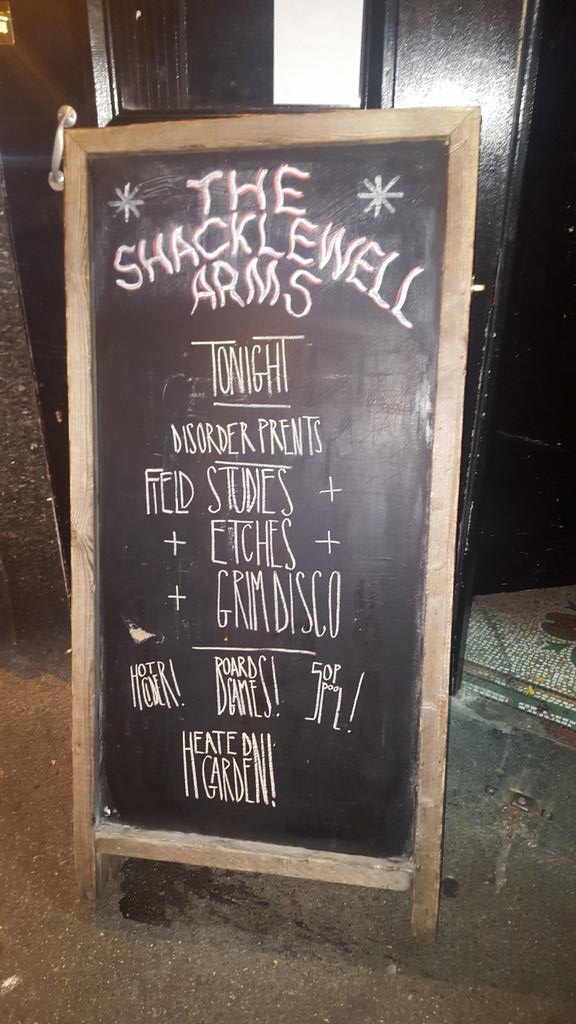 THE
SHACKLEWELL
ARMS
TONIGHT
DISORDER PRENTS
FIELD STUDIES +
+ ETCHES +
+ GRIM DISCO
HOT CIDER! BOARD GAMES! 50P POOL!
HEATED
GARDEN!